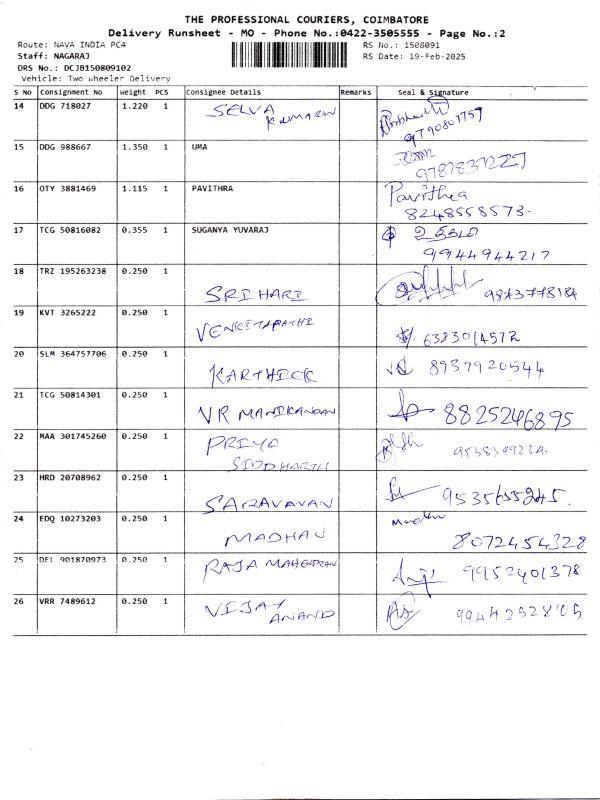 THE PROFESSIONAL COURIERS, COIMBATORE
Delivery Runsheet - MO - Phone No.:0422-3505555 - Page No.:2
Route: NAVA INDIA PC4 RS No.: 1508091
Staff: NAGARAJ RS Date: 19-Feb-2025
DRS No.: DCJB150809102
Vehicle: Two Wheeler Delivery
S No Consignment No Weight PCS Consignee Details Remarks Seal & Signature
14 DDG 718027 1.220 1 SELVA KUMARAN
9790801757
15 DDG 988667 1.350 1 UMA
16 OTY 3881469 1.115 1 PAVITHRA Pavithra
8248558573.
17 TCG 50816082 0.355 1 SUGANYA YUVARAJ
9944944217
18 TRZ 195263238 0.250 1
SRI HARI
19 KVT 3265222 0.250 1
VENKETAPATHI 6383014572
20 SLM 364757706 0.250 1
KARTHICK 8937920544
21 TCG 50814301 0.250 1
VR MANIKANDAN 8825246895
22 MAA 301745260 0.250 1 PRIYA
SIDDHARTH
23 HRD 20708962 0.250 1
SARAVANAN 9535655245.
24 EDQ 10273203 0.250 1 Madhu
MADHAV 8072454328
25 DEL 901870973 0.250 1 RAJA MAHENDRAN
9952401378
26 VRR 7489612 0.250 1 VIJAY
ANAND